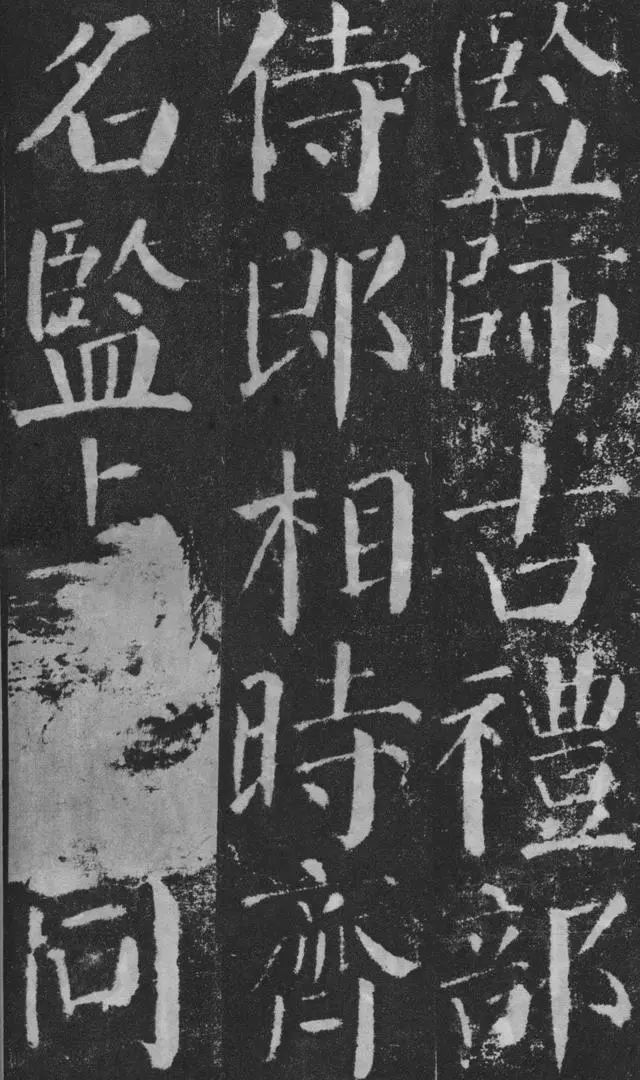 監師古禮部
侍郎相時齊
名監上同